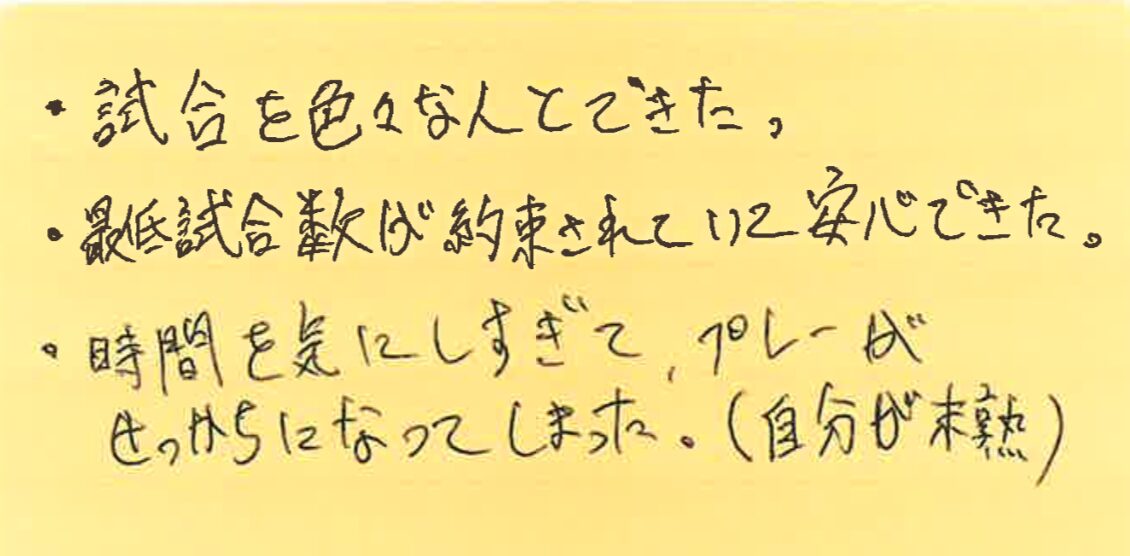 ・試合を色々な人とできた。
・最低試合数が約束されていて安心できた。
・時間を気にしすぎて、プレーが
せっかちになってしまった。(自分が未熟)